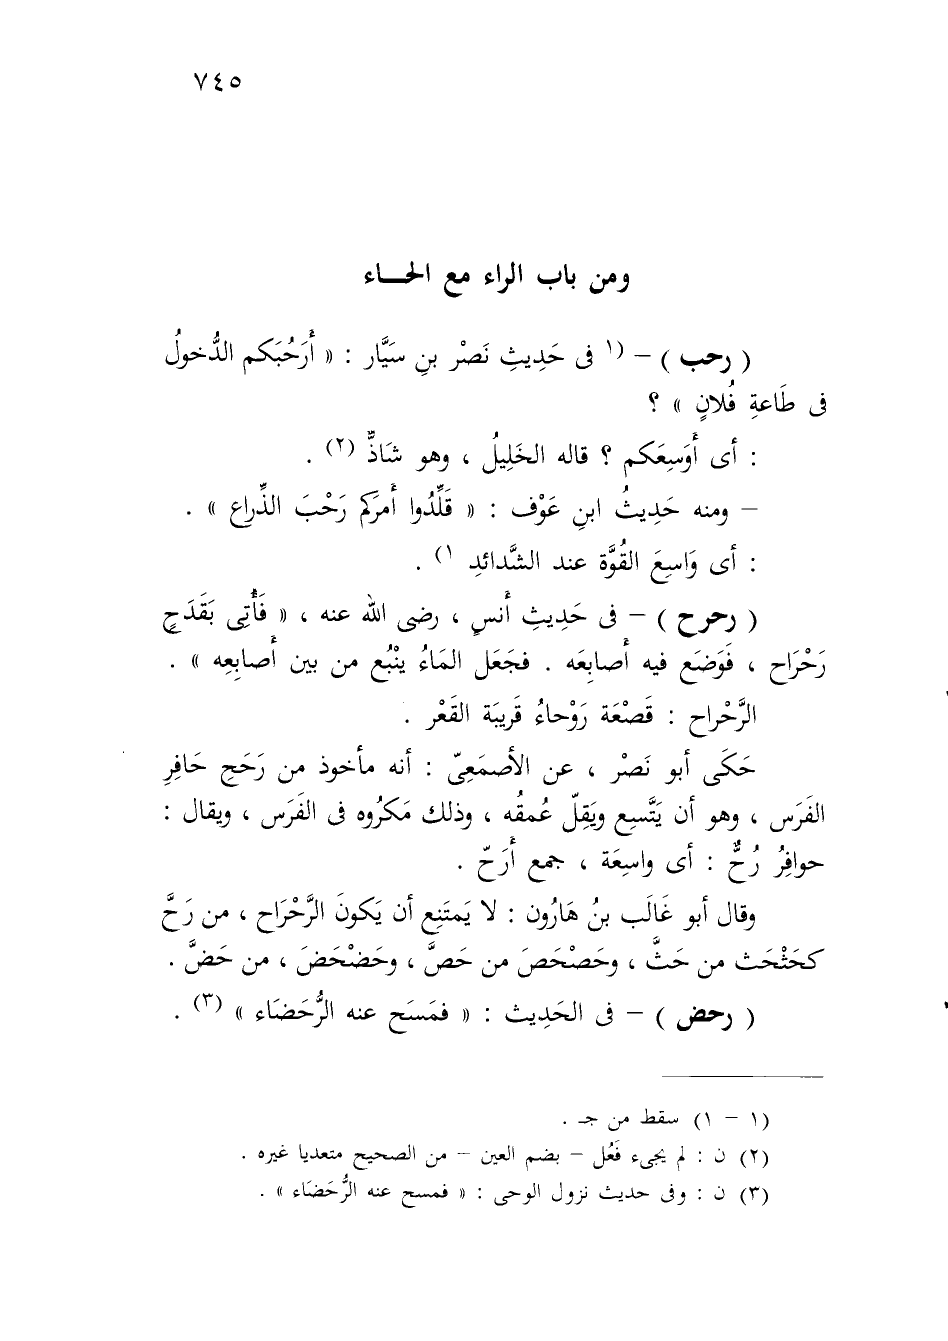 ٧٤٥
ومن باب الراء مع الحــاء
( رحب ) – (١ فى حَدِيثِ نَصْر بنِ سَيَّار : « أَرَحُبَكم الدُّخولُ
فى طَاعةِ فُلانٍ » ؟
: أى أَوَسِعَكم ؟ قاله الخَلِيلُ ، وهو شَاذٌّ (٢) .
– ومنه حَدِيثُ ابنِ عَوْف : « قَلِّدُوا أَمرَكم رَحْبَ الذِّراع » .
: أى وَاسِعَ القُوَّة عند الشَّدائدِ ١) .
( رحرح ) – فى حَدِيثِ أَنسٍ ، رضى الله عنه ، « فَأُتِى بَقَدَحٍ
رَحْرَاح ، فَوَضَع فيه أَصابِعَه . فجَعَل المَاءُ ينْبُع من بين أَصابِعِه » .
الرَّحْراح : قَصْعَة رَوْحاءُ قَرِيبَة القَعْر .
حَكَى أبو نَصْر ، عن الأصمَعِىّ : أنه مأخوذ من رَحَحِ حَافِرِ
الفَرَس ، وهو أن يَتَّسِع ويَقِلّ عُمقُه ، وذلك مَكرُوه فى الفَرَس ، ويقال :
حوافِرُ رُحٌّ : أى واسِعَة ، جمع أَرَحّ .
وقال أبو غَالَب بنُ هَارُون : لا يَمتَنِع أن يَكونَ الرَّحْرَاح ، من رَحَّ
كحَثْحَث من حَثَّ ، وحَصْحَصَ من حَصَّ ، وحَضْحَضَ ، من حَضَّ .
( رحض ) – فى الحَدِيث : « فمَسَح عنه الرُّحَضَاء » (٣) .
(١ – ١) سقط من جـ .
(٢) ن : لم يجىء فَعُل – بضم العين – من الصحيح متعديا غيره .
(٣) ن : وفى حديث نزول الوحى : « فمسح عنه الرُّحَضَاء » .